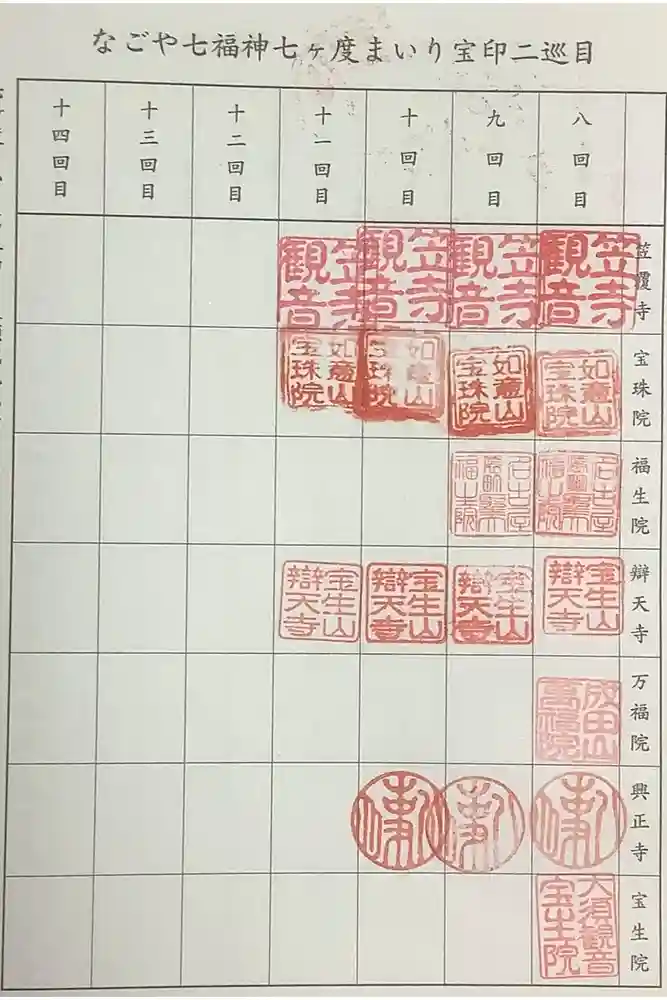 なごや七福神七ヶ度まいり宝印二巡目
八回目
九回目
十回目
十一回目
十二回目
十三回目
十四回目
笠覆寺
笠寺観音
笠寺観音
笠寺観音
笠寺観音
宝珠院
如意山宝珠院
如意山宝珠院
如意山宝珠院
如意山宝珠院
福生院
名古屋
福生院
名古屋
福生院
辯天寺
金生山辯天寺
金生山辯天寺
金生山辯天寺
金生山辯天寺
万福院
成田山萬福院
興正寺
宝生院
大須観音宝生院